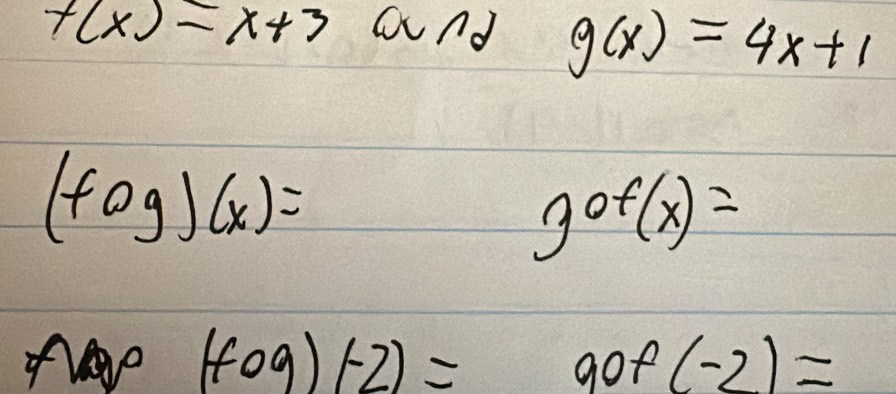 f(x) = x+3 and g(x) = 4x+1
(fog)(x)= gof(x)=
(fog)(-2) = gof(-2) =